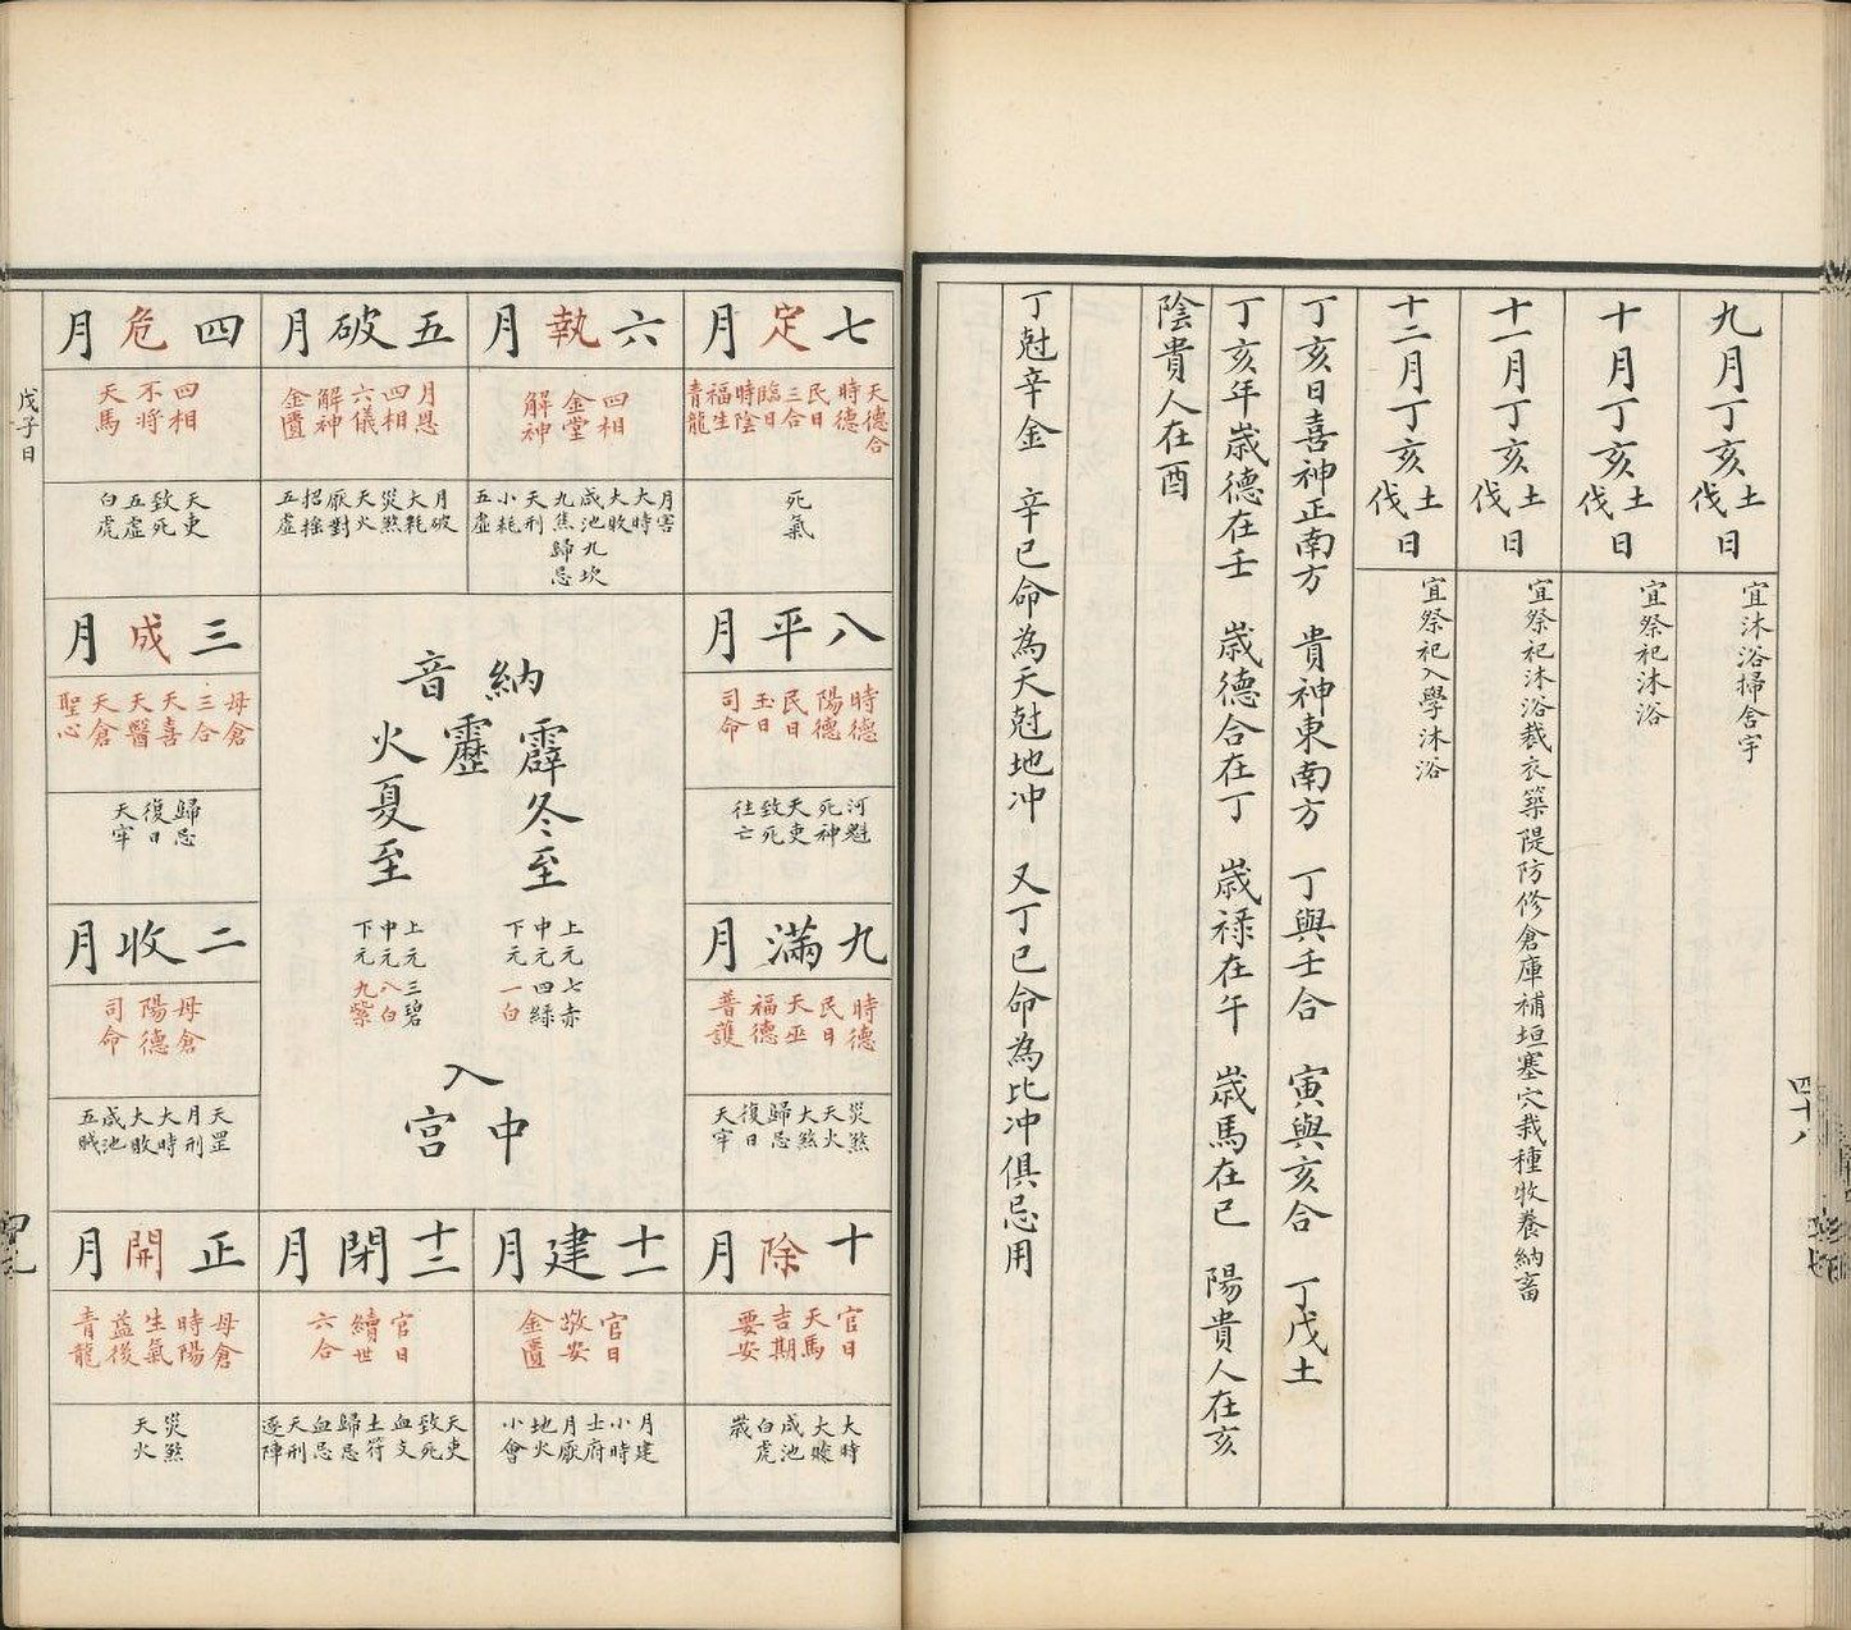 九月丁亥土伐日 宜沐浴掃舍宇
十月丁亥土伐日 宜祭祀沐浴
十一月丁亥土伐日 宜祭祀沐浴裁衣築隄防修倉庫補垣塞穴栽種牧養納畜
十二月丁亥土伐日 宜祭祀入學沐浴
丁亥日喜神正南方 貴神東南方 丁與壬合 寅與亥合 丁戊土
丁亥年歲德在壬 歲德合在丁 歲祿在午 歲馬在巳 陽貴人在亥
陰貴人在酉
丁尅辛金 辛巳命為天尅地冲 又丁巳命為比冲俱忌用
四十八
七定月
天德合 時德 民日 三合 臨日 時陰 福生 青龍
死氣
六執月
四相 金堂 解神
月害 大時 大敗 咸池 九焦 天刑 小耗 五虛
九坎 歸忌
五破月
月恩 四相 六儀 解神 金匱
月破 大耗 災煞 天火 厭對 招搖 五虛
四危月
四相 不將 天馬
天吏 致死 五虛 白虎
八平月
時德 陽德 民日 玉日 司命
河魁 死神 天吏 致死 往亡
三成月
母倉 三合 天喜 天醫 天倉 聖心
歸忌 復日 天牢
九滿月
時德 民日 天巫 福德 普護
災煞 天火 大煞 歸忌 復日 天牢
二收月
母倉 陽德 司命
天罡 月刑 大時 大敗 咸池 五賊
十除月
官日 天馬 吉期 要安
大時 大敗 咸池 白虎 歲
十一建月
官日 敬安 金匱
月建 小時 土府 月厭 地火 小會
十二閉月
官日 續世 六合
天吏 致死 血支 土符 歸忌 血忌 天刑 逐陣
正開月
母倉 時陽 生氣 益後 青龍
災煞 天火
納音
霹靂火
冬至 上元七赤 中元四綠 下元一白
夏至 上元三碧 中元八白 下元九紫
入
中宮
戊子日